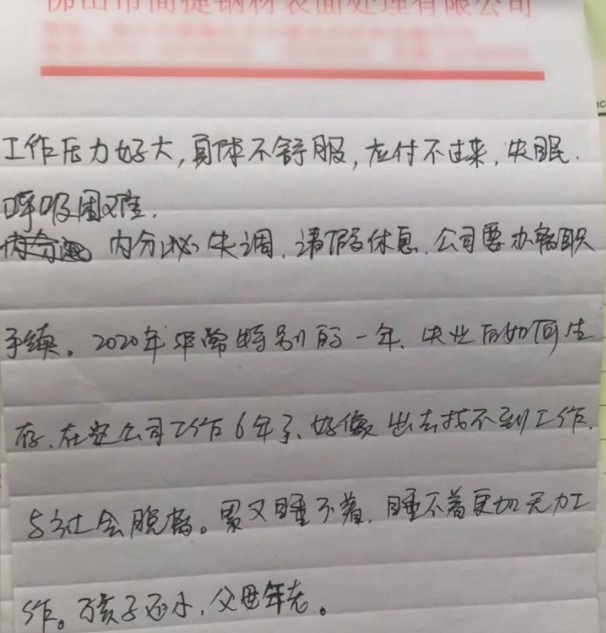 佛山市简捷钢材表面处理有限公司
工作压力好大，身体不舒服，应付不过来，失眠．
呼吸困难．
内分泌失调．请假休息．公司要办离职
手续。2020年非常特别的一年、失业后如何生
存．在这公司工作6年了、好像出去找不到工作．
与社会脱节。累又睡不着．睡不着更加无力工
作。孩子还小，父母年老。